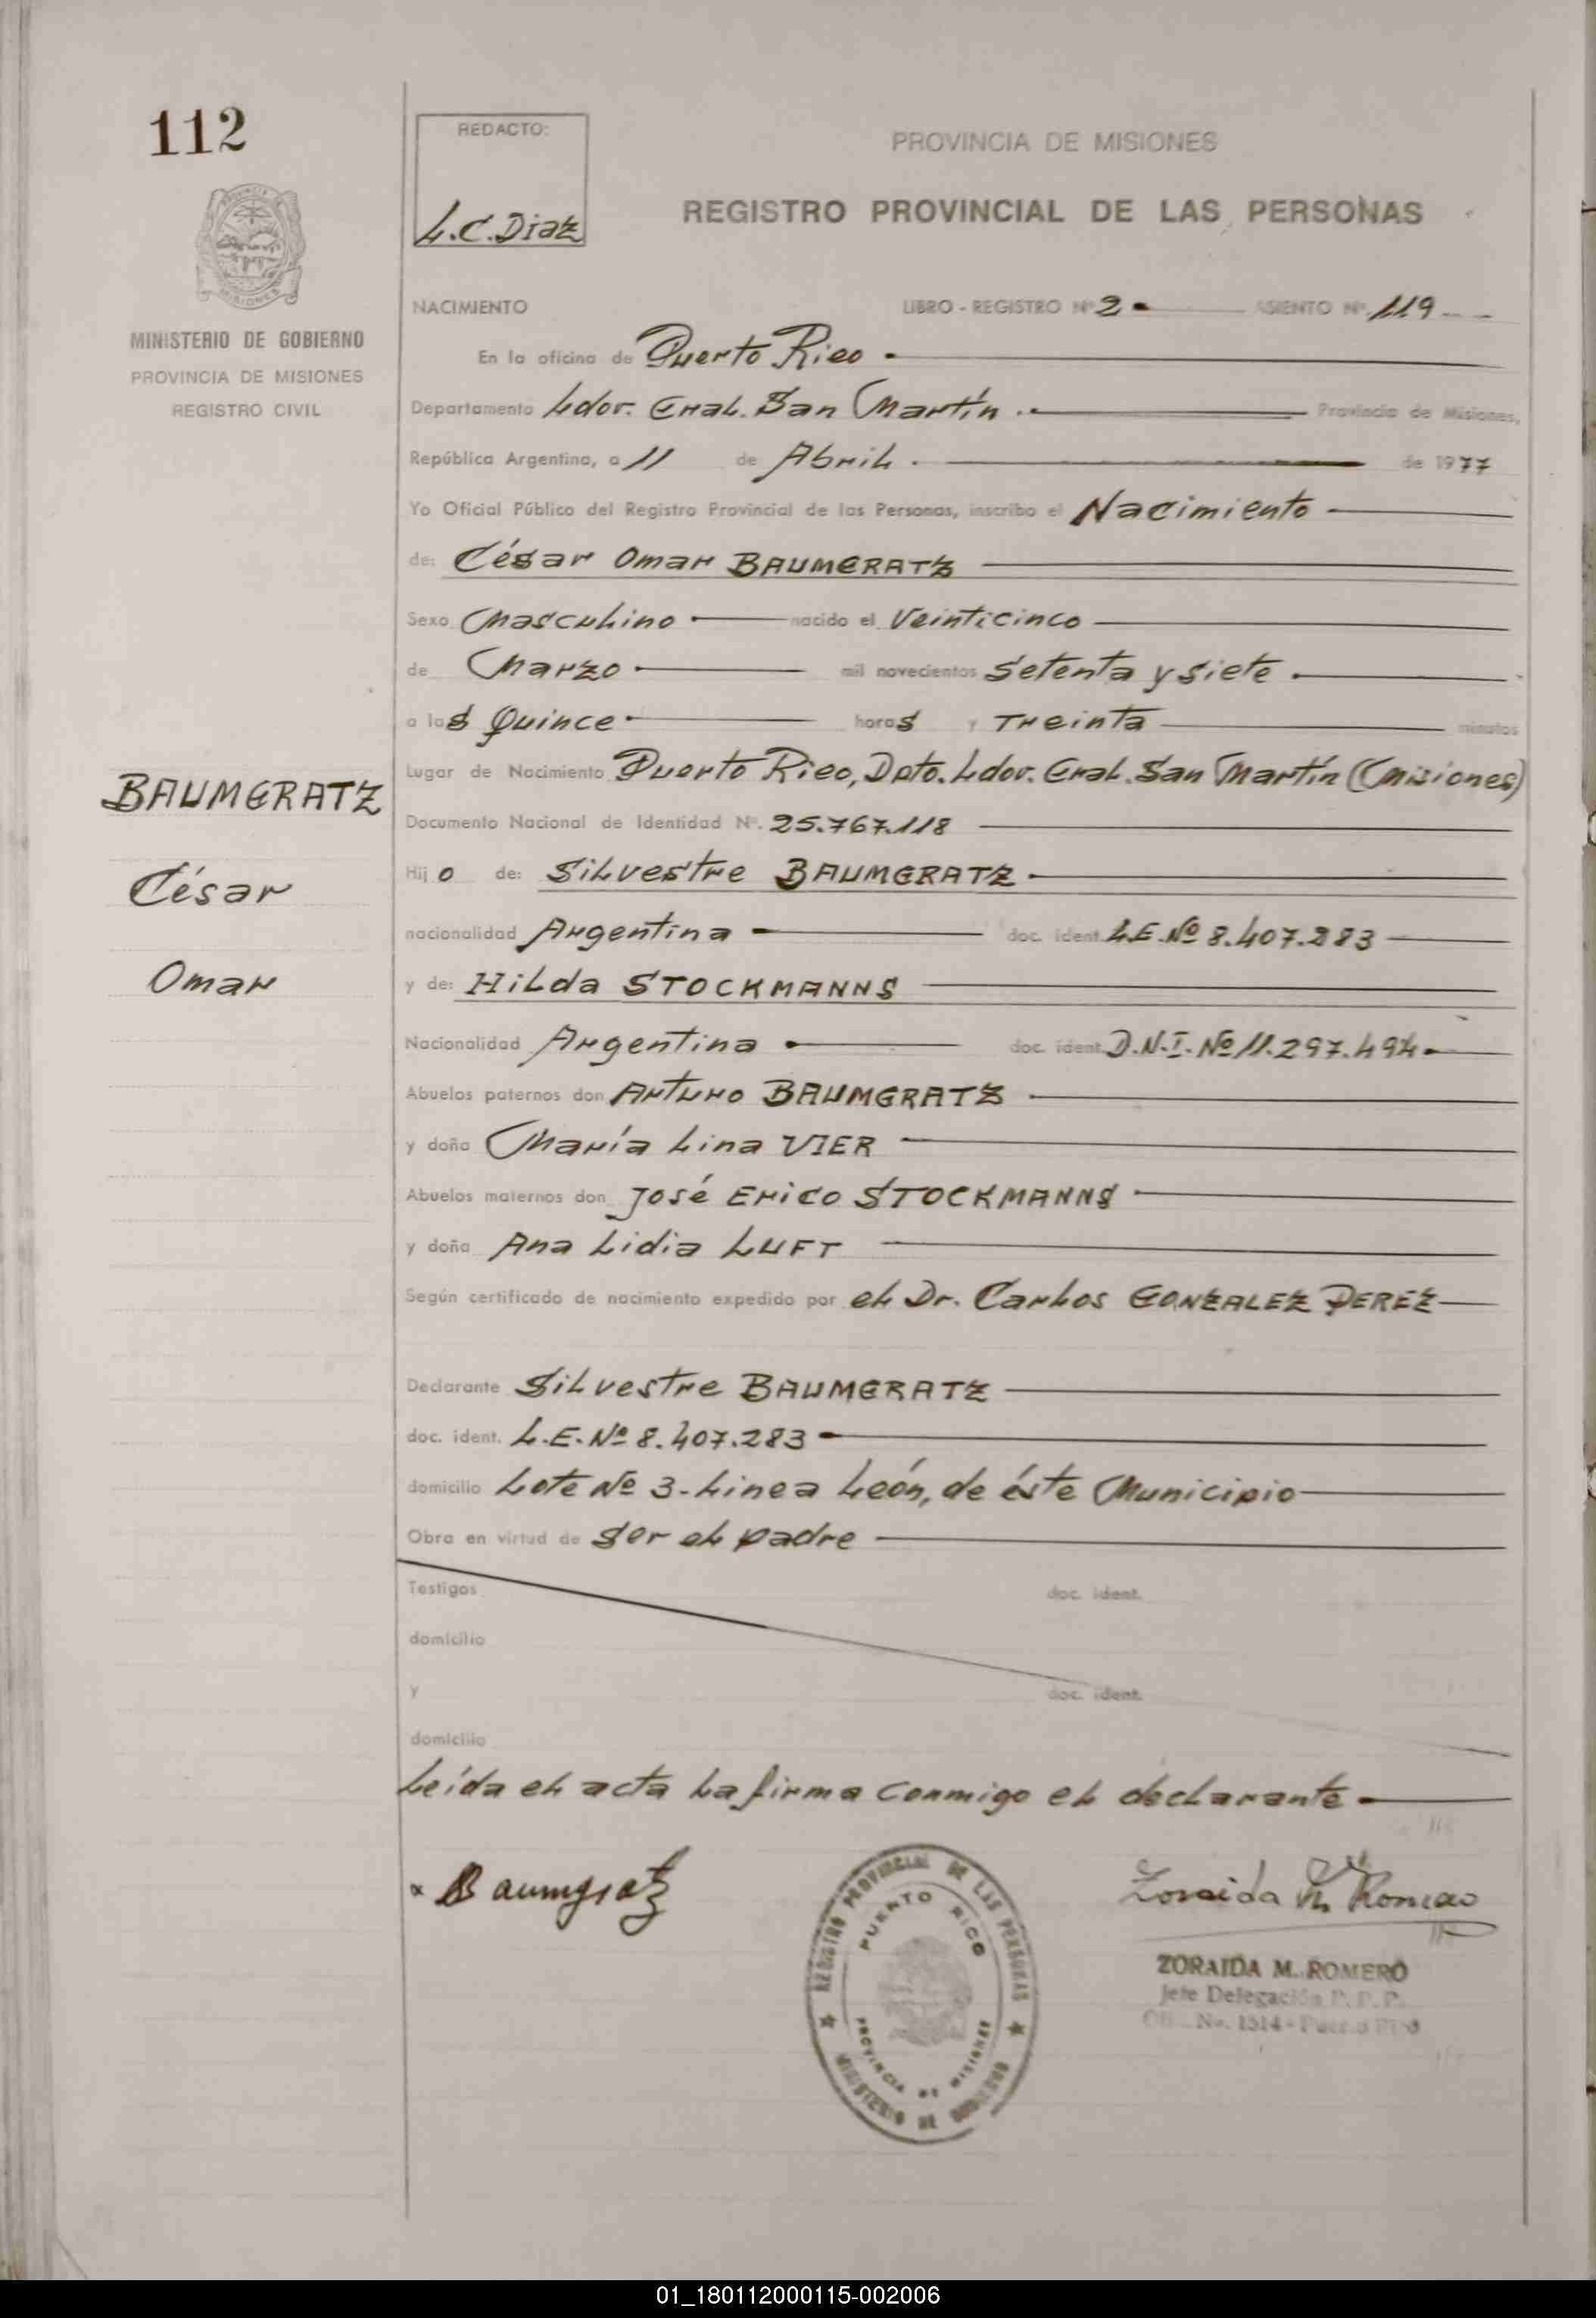 112
REDACTO:
L.C. Diaz
PROVINCIA DE MISIONES
REGISTRO PROVINCIAL DE LAS PERSONAS
MISIONES
MINISTERIO DE GOBIERNO
PROVINCIA DE MISIONES
REGISTRO CIVIL
NACIMIENTO LIBRO - REGISTRO Nº 2 ASIENTO Nº. 119
En la oficina de Puerto Rico
Departamento Ldor. Gral. San Martín. Provincia de Misiones,
República Argentina, a 11 de Abril. de 1977
Yo Oficial Público del Registro Provincial de las Personas, inscribo el Nacimiento
de: César Omar BAUMGRATZ
Sexo Masculino nacido el Veinticinco
de Marzo mil novecientos Setenta y Siete.
a las Quince horas y Treinta minutos
Lugar de Nacimiento Puerto Rico, Dpto. Ldor. Gral. San Martín (Misiones)
Documento Nacional de Identidad Nº. 25.767.118
BAUMGRATZ
César
Omar
Hijo de: Silvestre BAUMGRATZ
nacionalidad Argentina doc. ident. L.E. Nº 8.407.283
y de: Hilda STOCKMANNS
Nacionalidad Argentina doc. ident. D.N.I. Nº 11.297.494
Abuelos paternos don Arturo BAUMGRATZ
y doña María Lina VIER
Abuelos maternos don José Erico STOCKMANNS
y doña Ana Lidia LUFT
Según certificado de nacimiento expedido por el Dr. Carlos GONZALEZ PEREZ
Declarante Silvestre BAUMGRATZ
doc. ident. L.E. Nº 8.407.283
domicilio Lote Nº 3-Linea León, de éste Municipio
Obra en virtud de Ser el padre
Testigos doc. ident.
domicilio
y doc. ident.
domicilio
Leída el acta la firma conmigo el declarante
x Baumgratz
Zoraida M. Romero
REGISTRO PROVINCIAL DE LAS PERSONAS
PUERTO RICO
PROVINCIA DE MISIONES
MINISTERIO DE GOBIERNO
ZORAIDA M. ROMERO
Jefe Delegación
No. 1514 - Puerto Rico
01_180112000115-002006